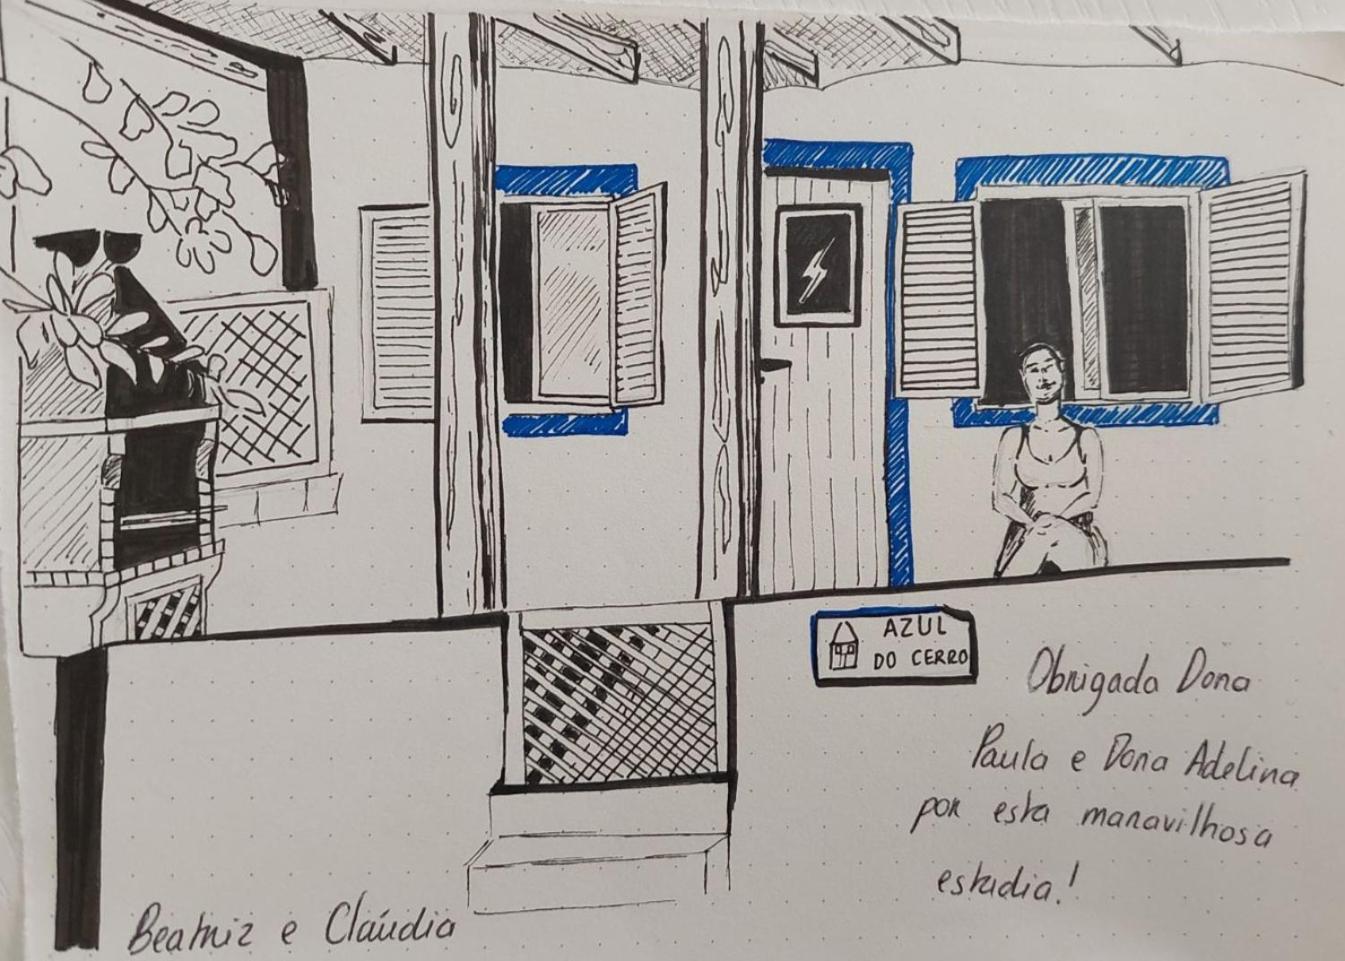 AZUL
DO CERRO
Obrigada Dona
Paula e Dona Adelina
por esta maravilhosa
estadia!
Beatriz e Claúdia